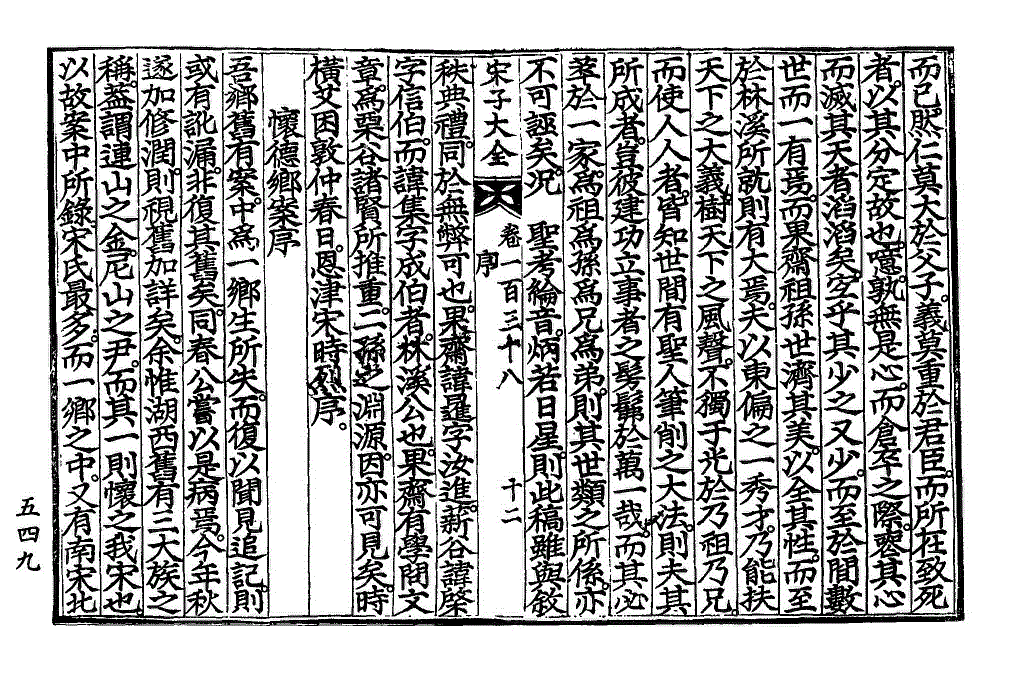 而已然仁莫大於父子義莫重於君臣而所在致死
者以其分定故也噫孰無是心而倉卒之際喪其心
而滅其天者滔滔矣宜乎其少之又少而至於間數
世而一有焉而果齋祖孫世濟其美以全其性而至
於林溪所就則有大焉夫以東偏之一秀才乃能扶
天下之大義樹天下之風聲不獨于光於乃祖乃兄
而使人人者皆知世間有聖人筆削之大法則夫其
所成者豈彼建功立事者之髣髴於萬一哉而其必
萃於一家爲祖爲孫爲兄爲弟則其世類之所係亦
不可誣矣况 聖考綸音炳若日星則此稿雖與敘
宋子大全 卷一百三十八 序 十二
秩典禮同於無弊可也果齋諱暹字汝進薪谷諱棨
字信伯而諱集字成伯者林溪公也果齋有學問文
章爲栗谷諸賢所推重二孫之淵源因亦可見矣時
橫艾困敦仲春日恩津宋時烈序
懷德鄉案序
吾鄉舊有案中爲一鄉生所失而復以聞見追記則
或有訛漏非復其舊矣同春公嘗以是病焉今年秋
遂加修潤則視舊加詳矣余惟湖西舊有三大族之
稱蓋謂連山之金尼山之尹而其一則懷之我宋也
以故案中所錄宋氏最多而一鄉之中又有南宋北
五四九